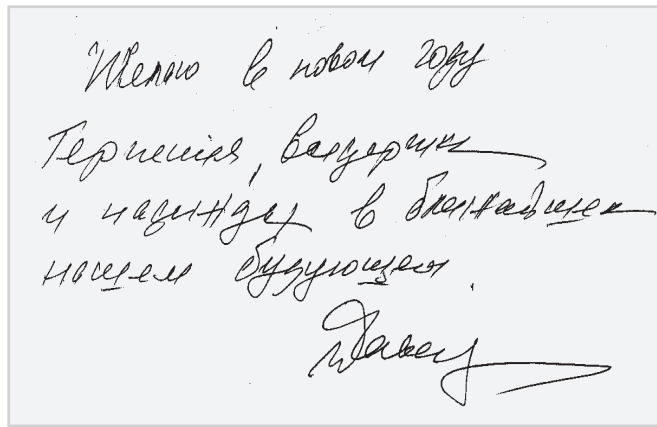 Желаю в новом году
Терпения, выдержки
и надежды в ближайшем
нашем будующем.